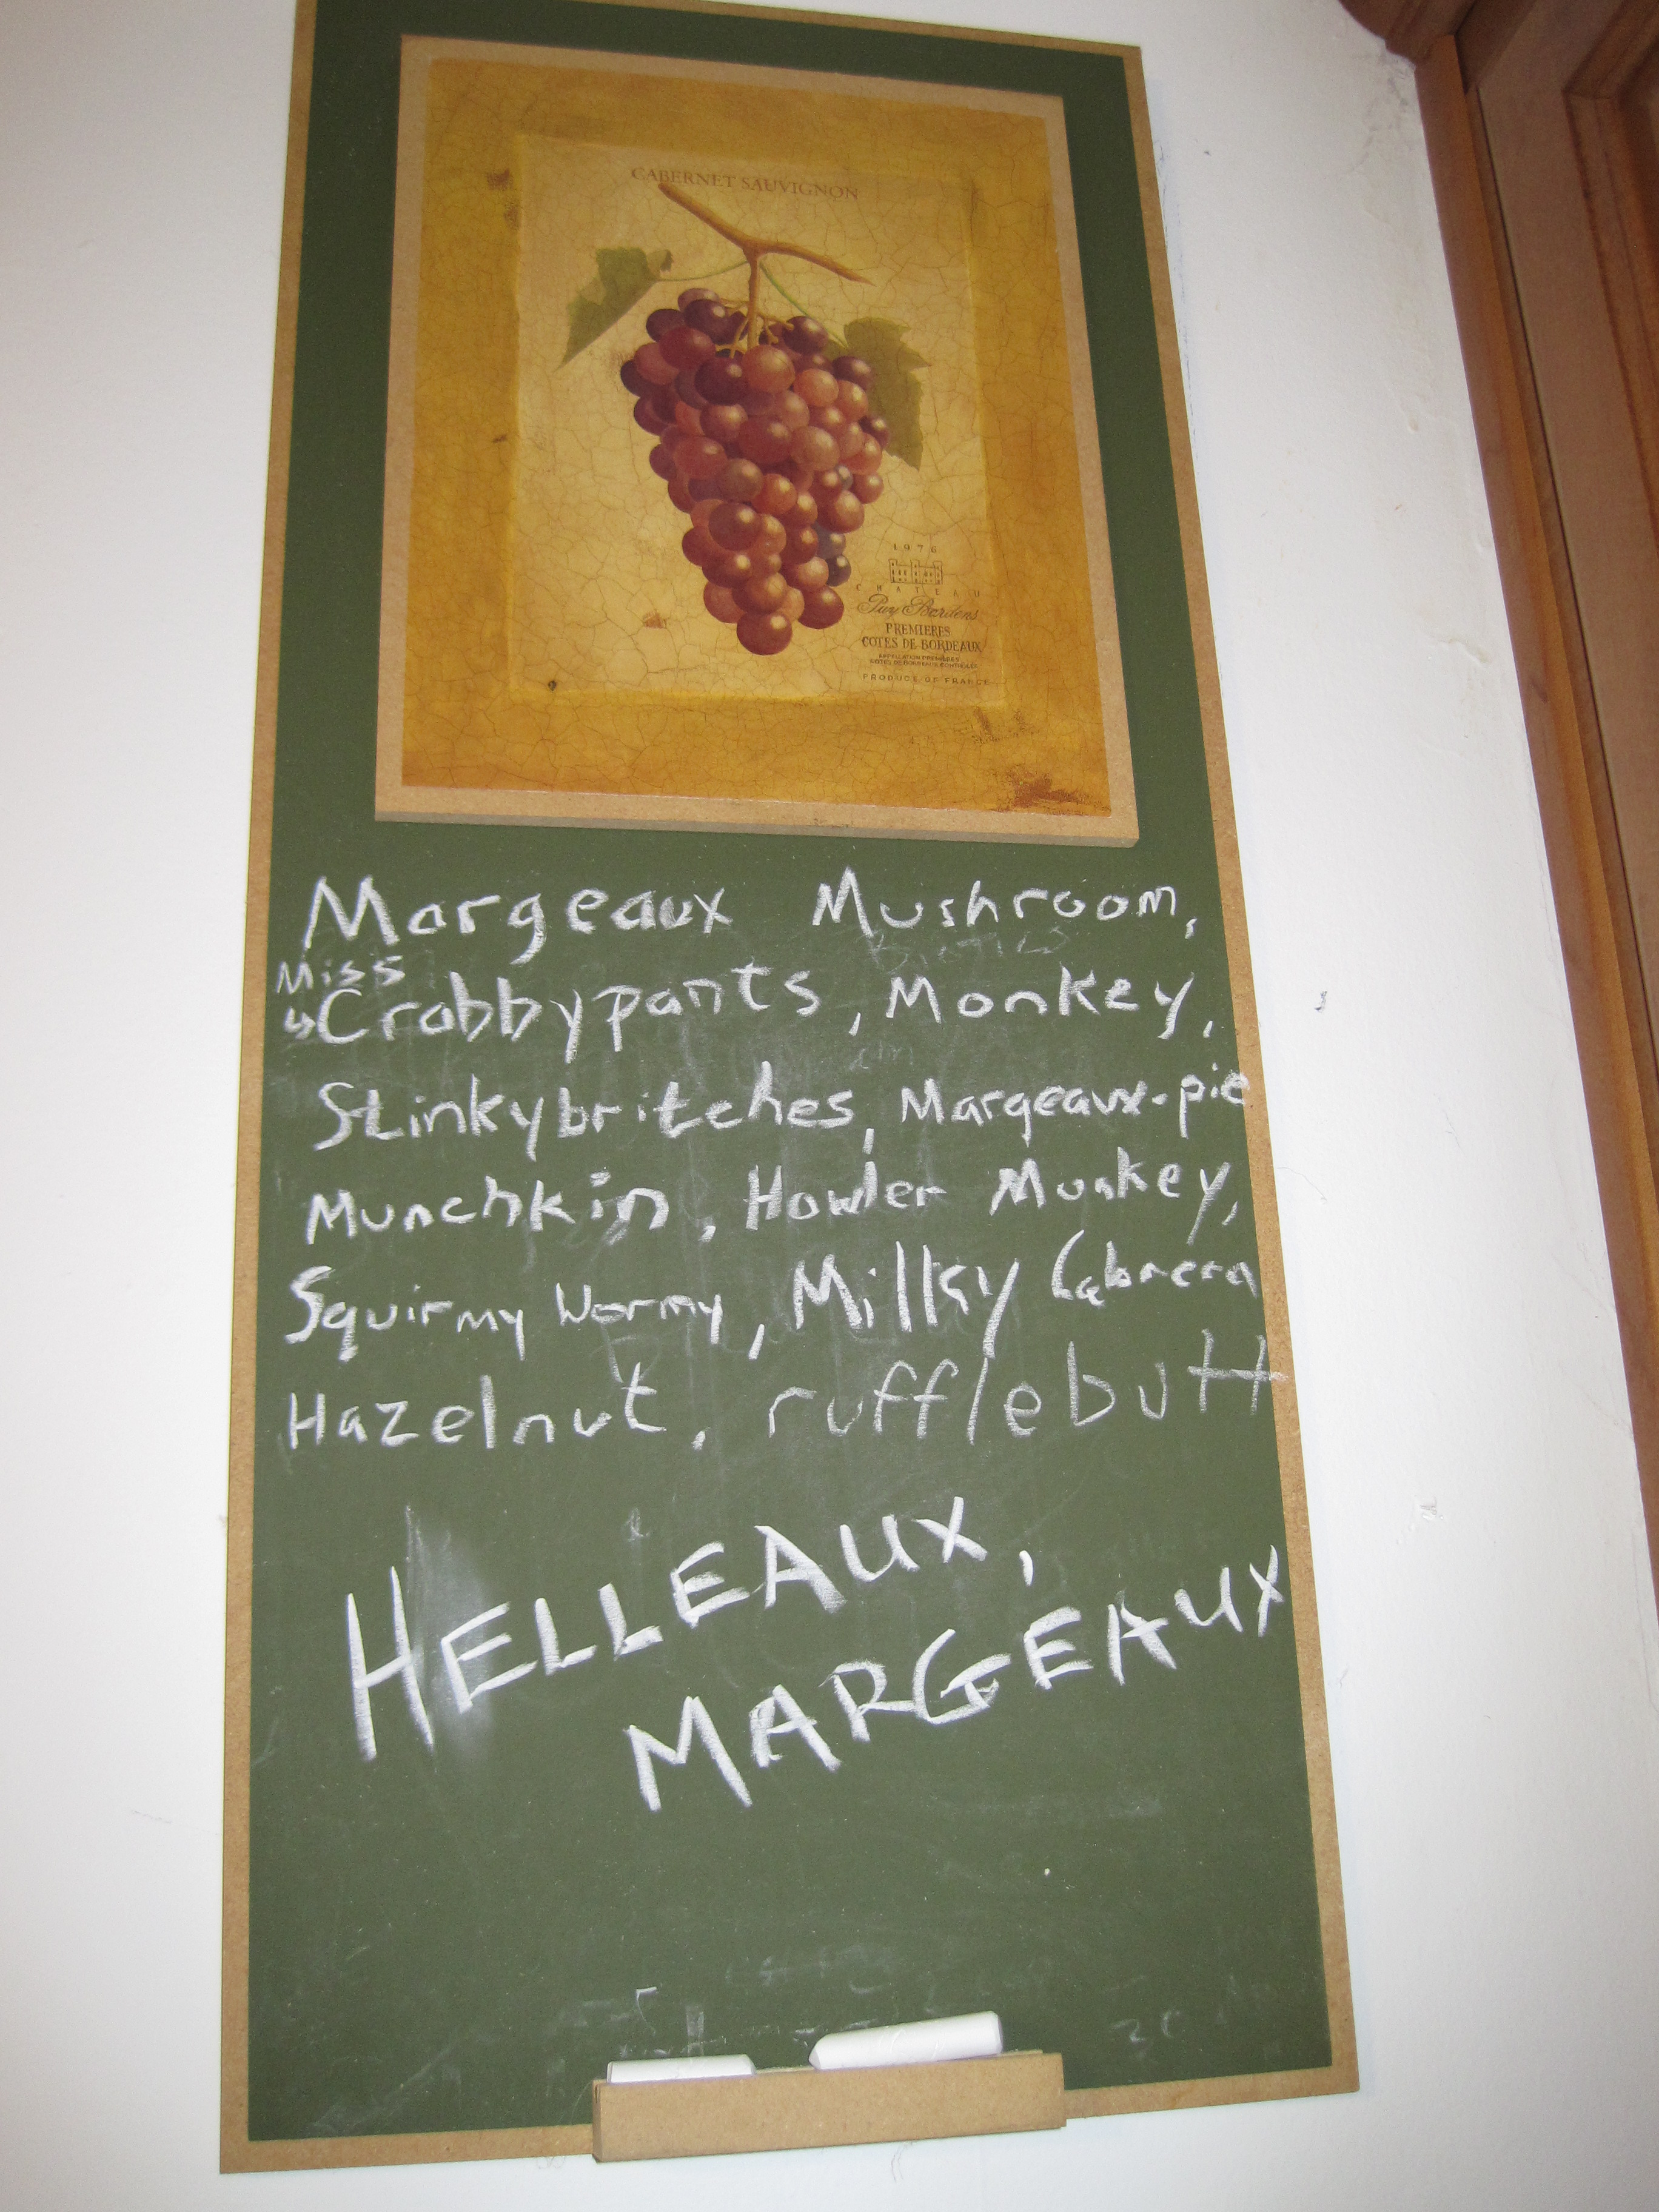 CABERNET SAUVIGNON
1976
CHATEAU
PREMIERES
COTES DE BORDEAUX
PRODUCE OF FRANCE
Margeaux Mushroom,
Miss
↳Crabbypants, Monkey,
Stinkybritches, Margeaux-pie
Munchkin, Howler Monkey,
Squirmy Wormy, Milky Cabrera
Hazelnut, rufflebutt
HELLEAUX,
MARGEAUX